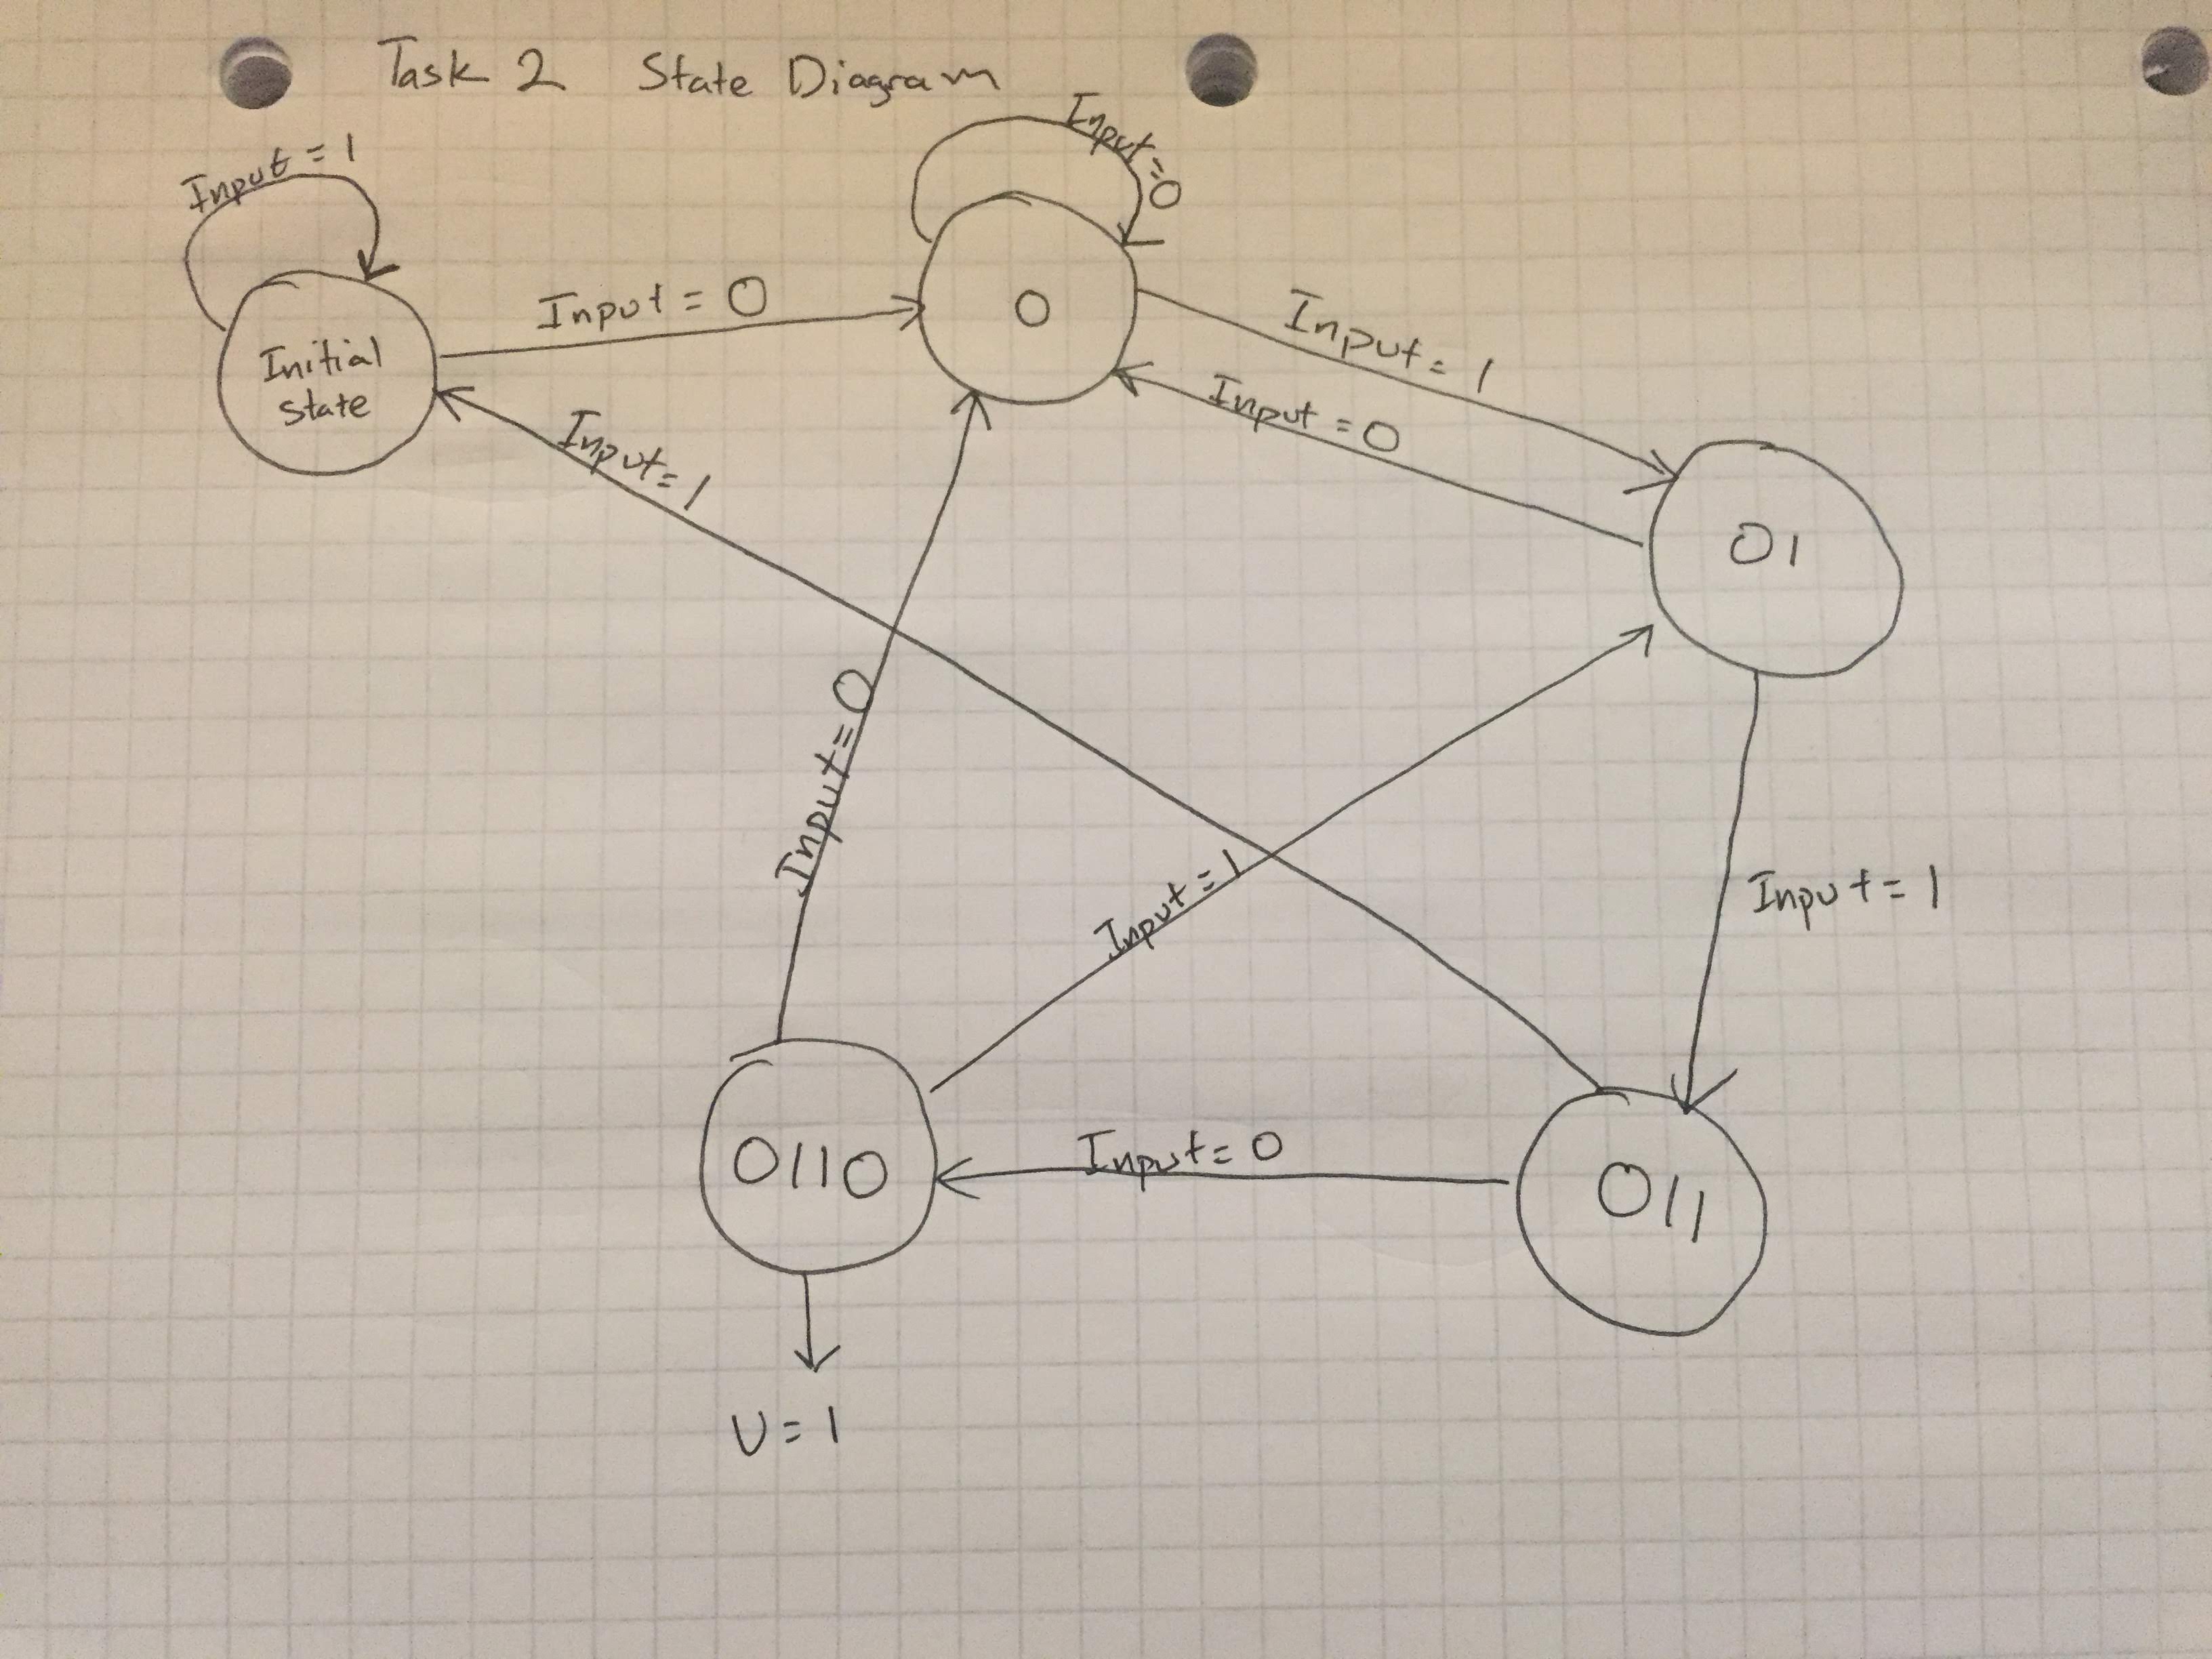 Task 2 State Diagram
Input = 1
Initial
state
Input = 0
Input = 0
0
Input = 1
Input = 0
01
Input = 1
Input = 0
Input = 1
Input = 1
0110
Input = 0
011
U = 1